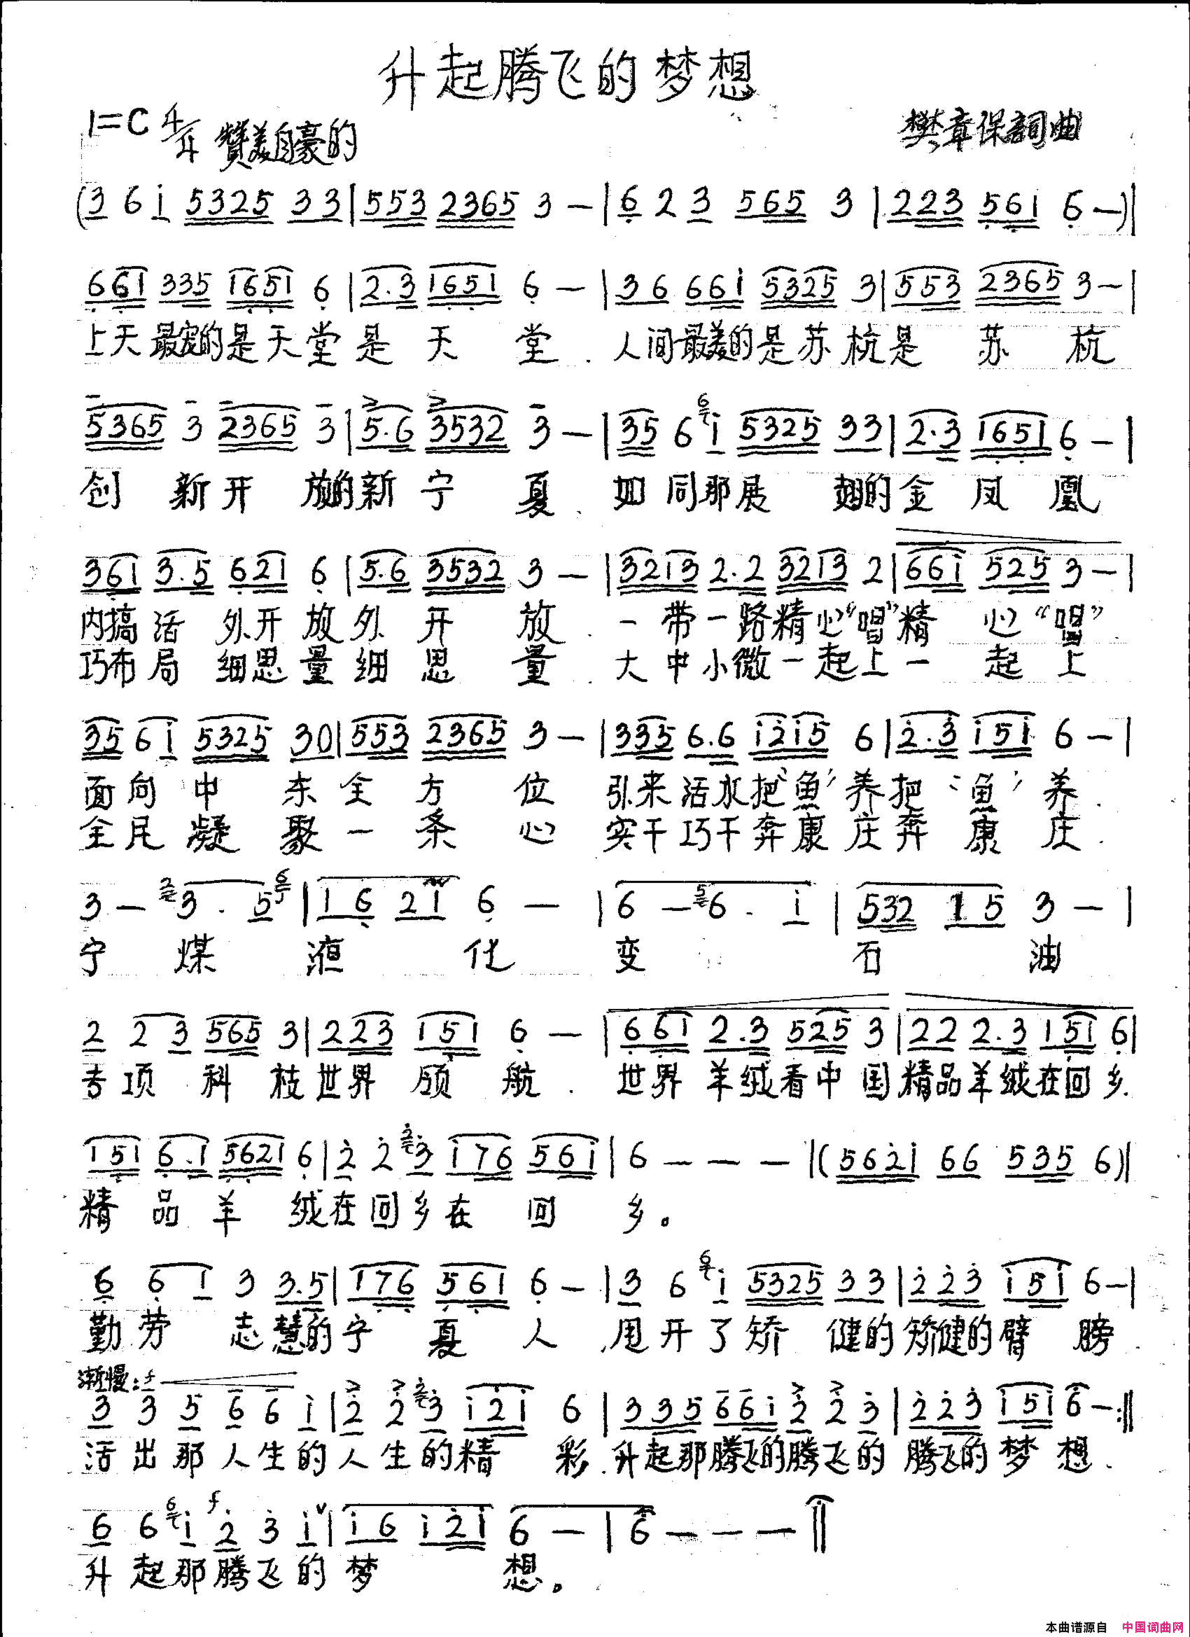 升起腾飞的梦想
1=C 4/4 赞美自豪的
樊章保詞曲
(3 6 i 5325 33|553 2365 3 —|6 2 3 565 3|223 561 6 —)|
661 335 1651 6|2.3 1651 6 —|36 661 5325 3|553 2365 3—|
上天最宠的是天堂是天堂.人间最美的是苏杭是苏杭
5365 3 2365 3|5.6 3532 3 —|35 6 i 5325 33|2.3 1651 6 —|
创新开放的新宁夏.如同那展翅的金凤凰
361 3.5 621 6|5.6 3532 3 —|3213 2.2 3213 2|661 525 3 —|
内搞活外开放外开放.一带一路精心“唱”精心“唱”.
巧布局细思量细思量.大中小微一起上一起上
35 61 5325 30|553 2365 3 —|335 6.6 i2i5 6|2.3 i5i 6 —|
面向中东全方位引来活水把‘鱼’养把‘鱼’养.
全民凝聚一条心实干巧干奔康庄奔康庄.
3 — 3 . 5|16 21 6 —|6 — 6 . i|532 15 3 —|
宁煤液化变石油
2 23 565 3|223 151 6 —|661 2.3 525 3|22 2.3 151 6|
专项科技世界领航.世界羊绒看中国精品羊绒在回乡.
151 6.1 5621 6|2 2 3 i76 56i|6 — — —|(562i 66 535 6)|
精品羊绒在回乡在回乡。
6 61 3 3.5|176 561 6 —|3 6 i 5325 33|223 i5i 6—|
勤劳志慧的宁夏人.甩开了矫健的矫健的臂膀.
渐慢:f
3 3 5 6 6 i|2 2 3 i2i 6|335 66i 2 2 3|223 i5i 6—:‖
活出那人生的人生的精彩.升起那腾飞的腾飞的腾飞的梦想.
6 6 i 2 3 i|i6 i2i 6 —|6 — — —‖
升起那腾飞的梦想。
本曲谱源自 中国词曲网